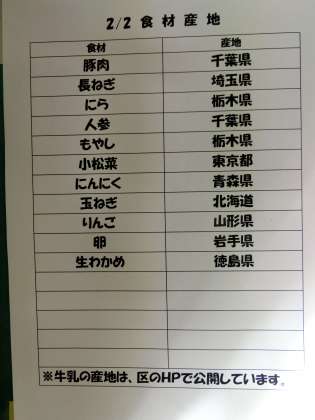 2/2 食材産地
食材 産地
豚肉 千葉県
長ねぎ 埼玉県
にら 栃木県
人参 千葉県
もやし 栃木県
小松菜 東京都
にんにく 青森県
玉ねぎ 北海道
りんご 山形県
卵 岩手県
生わかめ 徳島県
※牛乳の産地は、区のHPで公開しています。